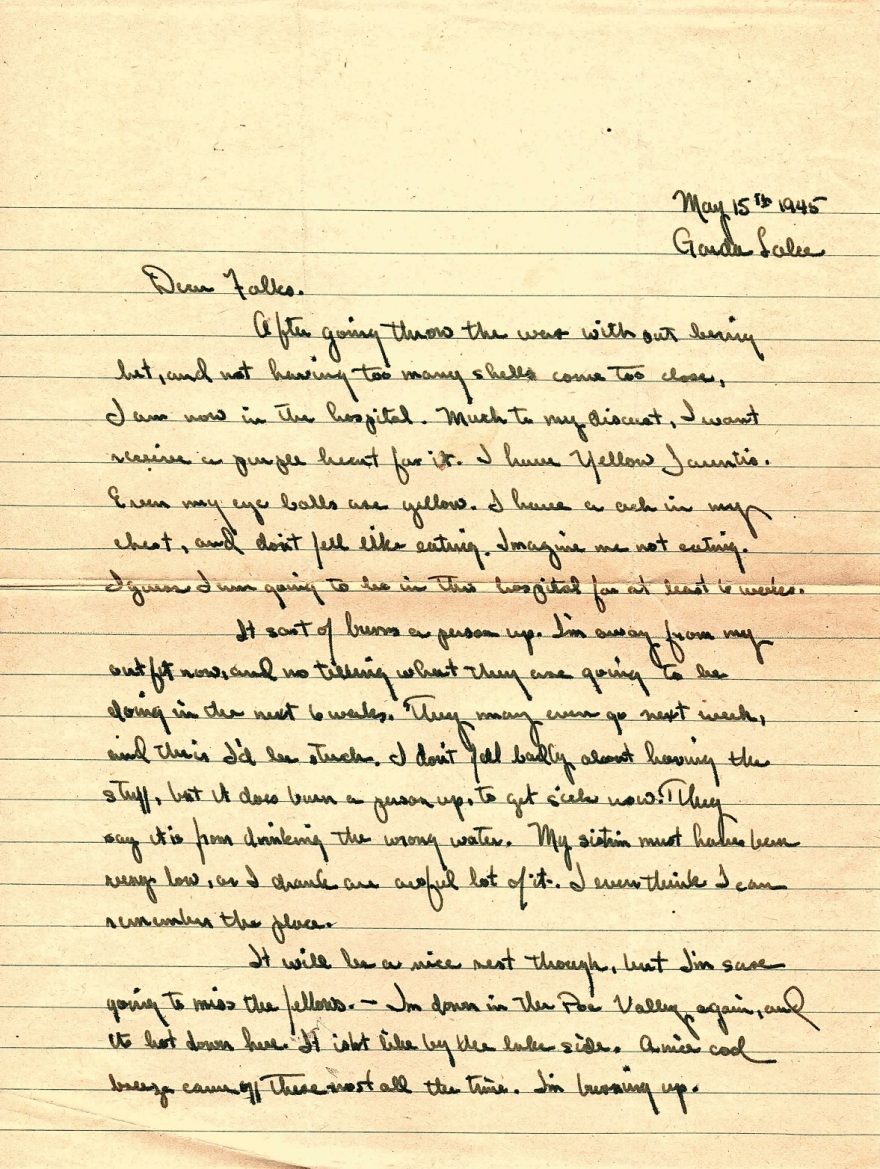 May 15th 1945
Garda Lake
Dear Folks.
After going throw the war with out being
het, and not having too many shells come too close,
I am now in the hospital. Much to my discust, I want
receive a purple heart for it. I have Yellow Jauntis.
Even my eye balls are yellow. I have a ach in my
chest, and don't fell like eating. Imagine me not eating.
I guess I am going to be in this hospital for at least 6 weeks.
It sort of burns a person up. I'm away from my
outfit now, and no telling what they are going to be
doing in the next 6 weeks. They may even go next week,
and this I'd be stuck. I don't fell badly about having the
stuff, but it does burn a person up, to get sick now. They
say it is from drinking the wrong water. My sistim must have been
very low, as I drank an awful lot of it. I even think I can
remember the place.
It will be a nice rest though, but I'm sure
going to miss the fellows. — I'm down in the Poe Valley again, and
its hot down here. It isn't like by the lake side. A nice cool
breeze came off there most all the time. I'm burning up.